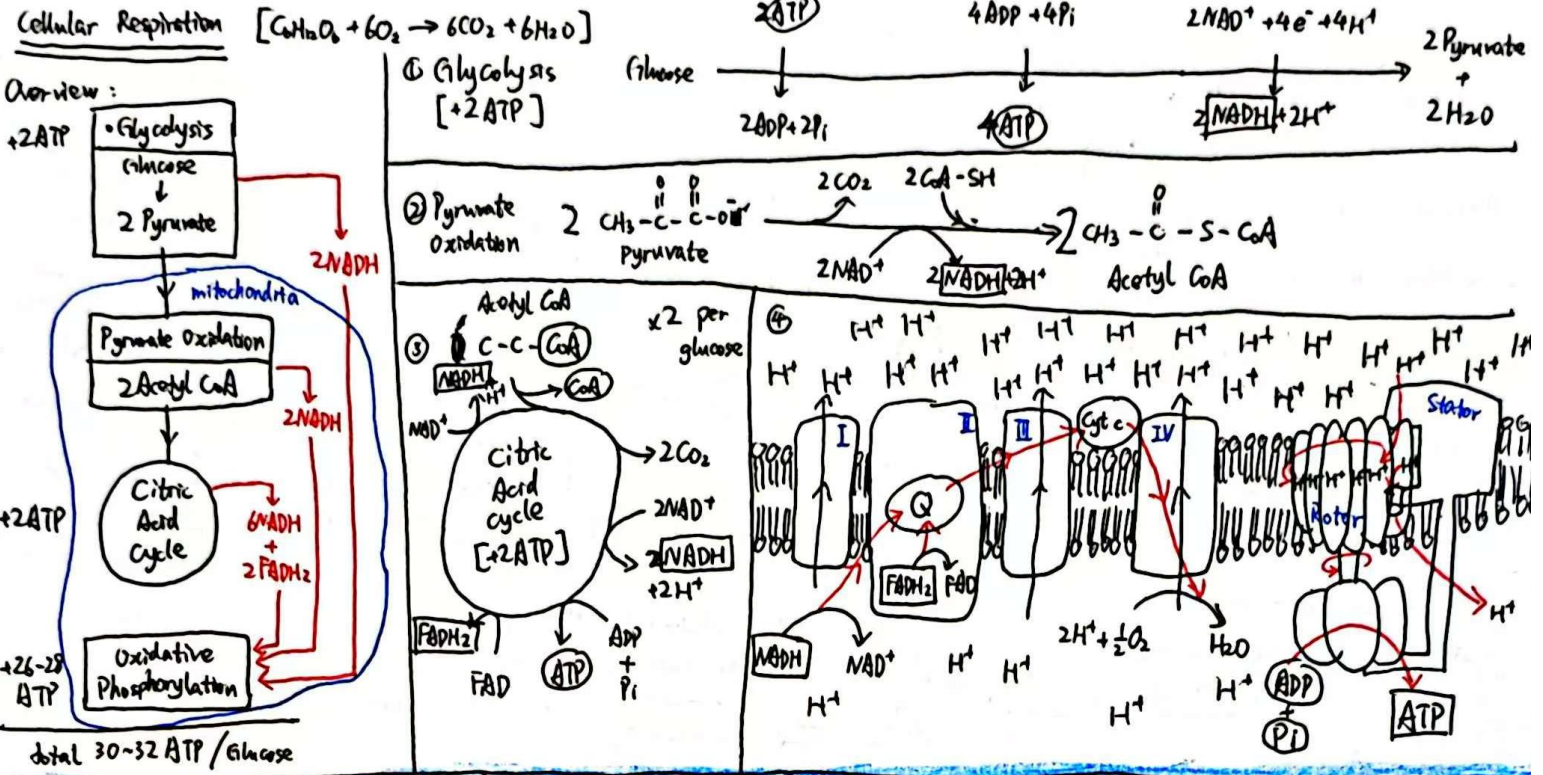 Cellular Respiration [C₆H₁₂O₆ + 6O₂ → 6CO₂ + 6H₂O]
Overview:
+2ATP
• Glycolysis
Glucose
↓
2 Pyruvate
2NADH
mitochondria
Pyruvate Oxidation
2 Acetyl CoA
2NADH
+2ATP
Citric
Acid
Cycle
6NADH
+
2FADH₂
+26-28
ATP
Oxidative
Phosphorylation
total 30~32 ATP / Glucose
① Glycolysis
[+2 ATP]
2ATP 4ADP + 4Pi 2NAD⁺ + 4e⁻ + 4H⁺
Glucose
2ADP+2Pi 4ATP 2NADH+2H⁺
2 Pyruvate
+
2H₂O
② Pyruvate
Oxidation
2CO₂ 2CoA-SH
O O
2 CH₃-C-C-O
Pyruvate
2NAD⁺ 2NADH+2H⁺
O
2 CH₃-C-S-CoA
Acetyl CoA
③
Acetyl CoA
C-C-CoA
x2 per
glucose
NADH
+H⁺
CoA
NAD⁺
Citric
Acid
cycle
[+2ATP]
2CO₂
2NAD⁺
2NADH
+2H⁺
FADH₂
FAD
ATP
ADP
+
Pi
④
H⁺ H⁺ H⁺ H⁺ H⁺ H⁺ H⁺ H⁺ H⁺ H⁺
H⁺ H⁺ H⁺ H⁺ H⁺ H⁺ H⁺ H⁺ H⁺ H⁺ H⁺ H⁺ H⁺ H⁺
I II III Cyt c IV
Stator
H⁺ H⁺ H⁺ H⁺ H⁺
Q
Rotor
FADH₂ FAD
NADH NAD⁺
2H⁺+½O₂ H₂O
H⁺
H⁺ H⁺ H⁺
H⁺ H⁺
ADP
+
Pi
ATP